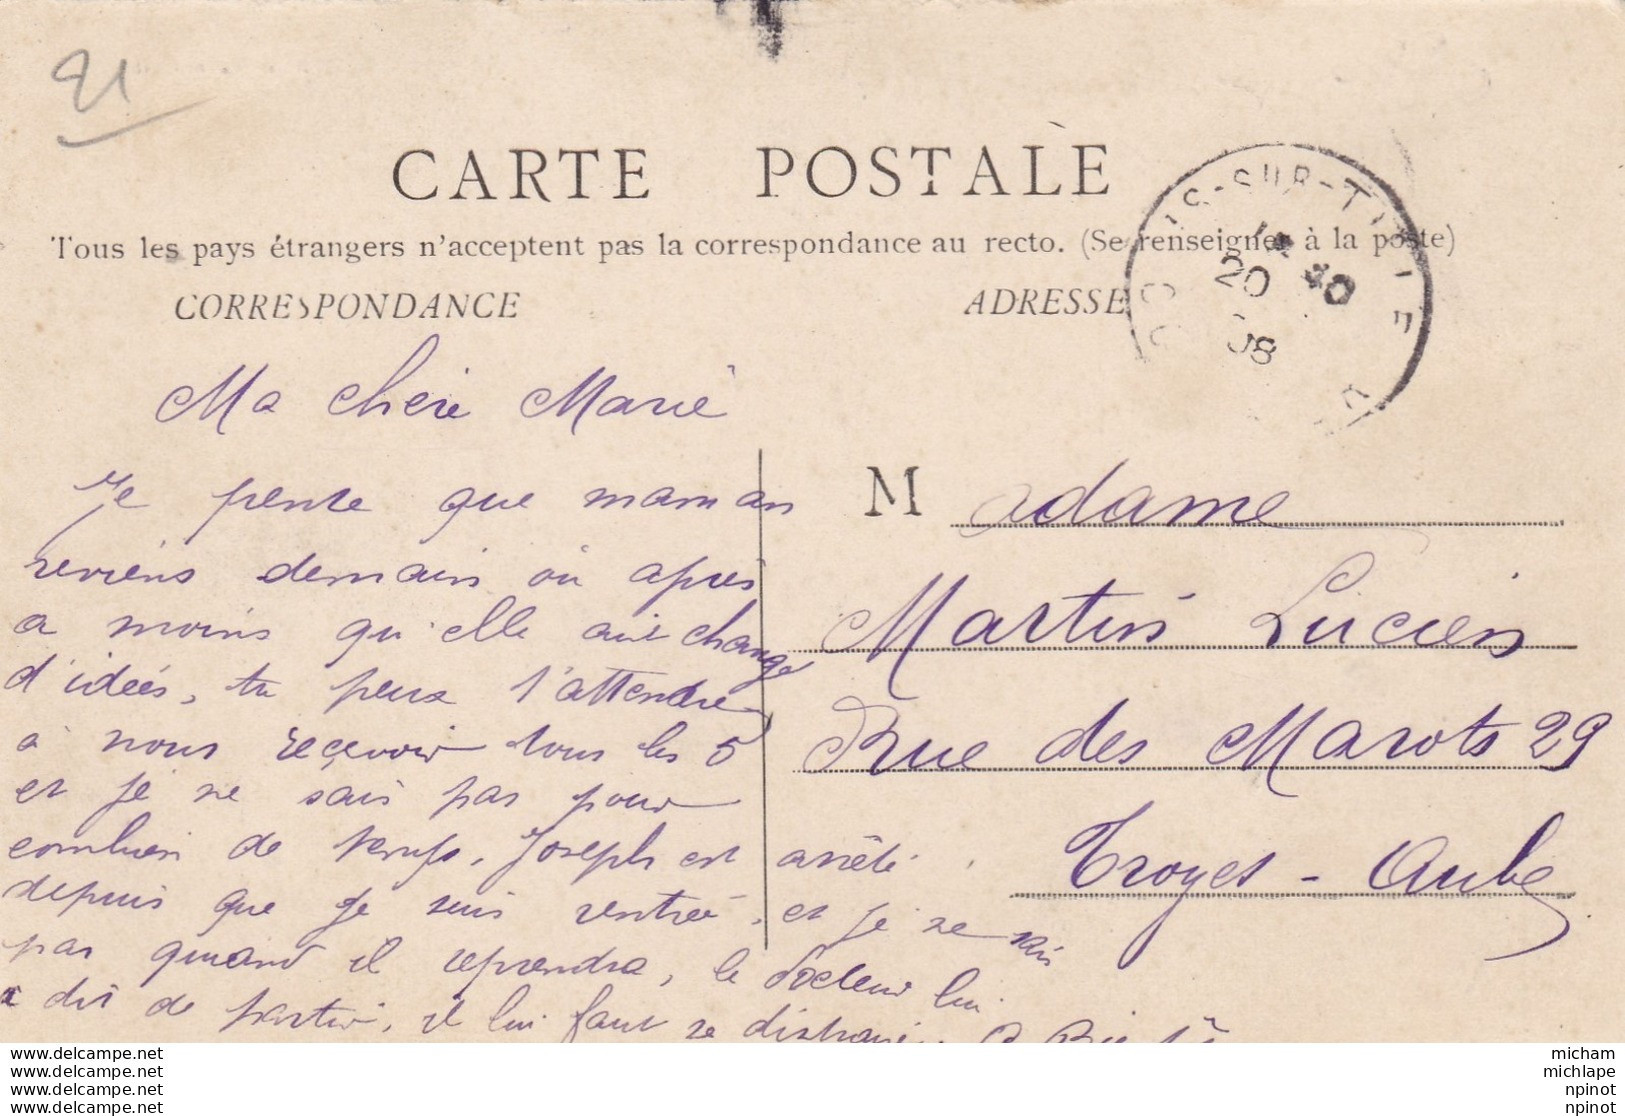 21
CARTE POSTALE
Tous les pays étrangers n'acceptent pas la correspondance au recto. (Se renseigner à la poste)
CORRESPONDANCE
ADRESSE
IS-SUR-TILLE
20
08
Ma chère Marie
Je pense que maman
reviens demain où après
a moins qu'elle ait changé
d'idées, tu peux t'attendre
à nous recevoir tous les 5
et je ne sais pas pour
combien de temps, Joseph est arrêté
depuis que je suis rentrée, et je ne sais
pas quand il reprendra, le docteur lui
a dit de partir, il lui faut se distraire
M adame
Martin Lucien
Rue des Marots 29
Troyes - Aube
www.delcampe.net
www.delcampe.net
www.delcampe.net
www.delcampe.net
micham
michlape
npinot
npinot